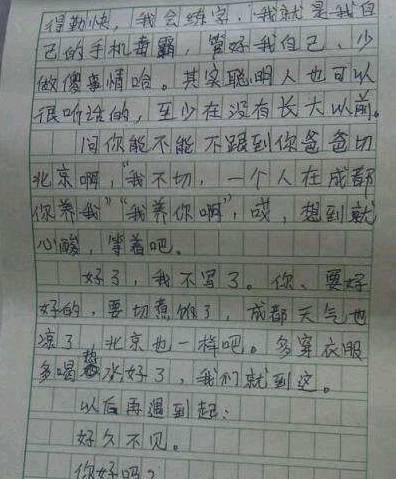 得勤快，我会练字，"我就是我自
己的手机毒霸，管好我自己、少
做傻事情哈。其实聪明人也可以
很听话的，至少在没有长大以前。
问你能不能不跟到你爸爸切
北京啊，"我不切，一个人在成都
你养我""我养你啊"，哎，想到就
心酸，等着吧。
好了，我不写了。你、要好
好的，要切煮饭了，成都天气也
凉了，北京也一样吧。多穿衣服
多喝热水好了，我们就到这。
以后再遇到起：
好久不见。
你好吗？